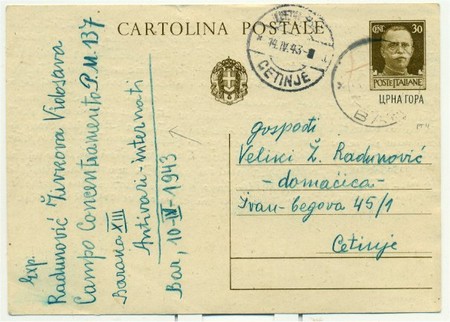 CARTOLINA POSTALE
CENT. 30
POSTE ITALIANE
ЦРНА ГОРА
14.IV.43-8
CETINJE
Exp.
Radunović Živkova Vidosava
Campo Concentramento P.M. 137.
Baraka XIII
Antivari-internati
Bar, 10-IV-1943
gospođi
Veliki Ž. Radunović
-domaćica-
Ivan-begova 45/1
Cetinje